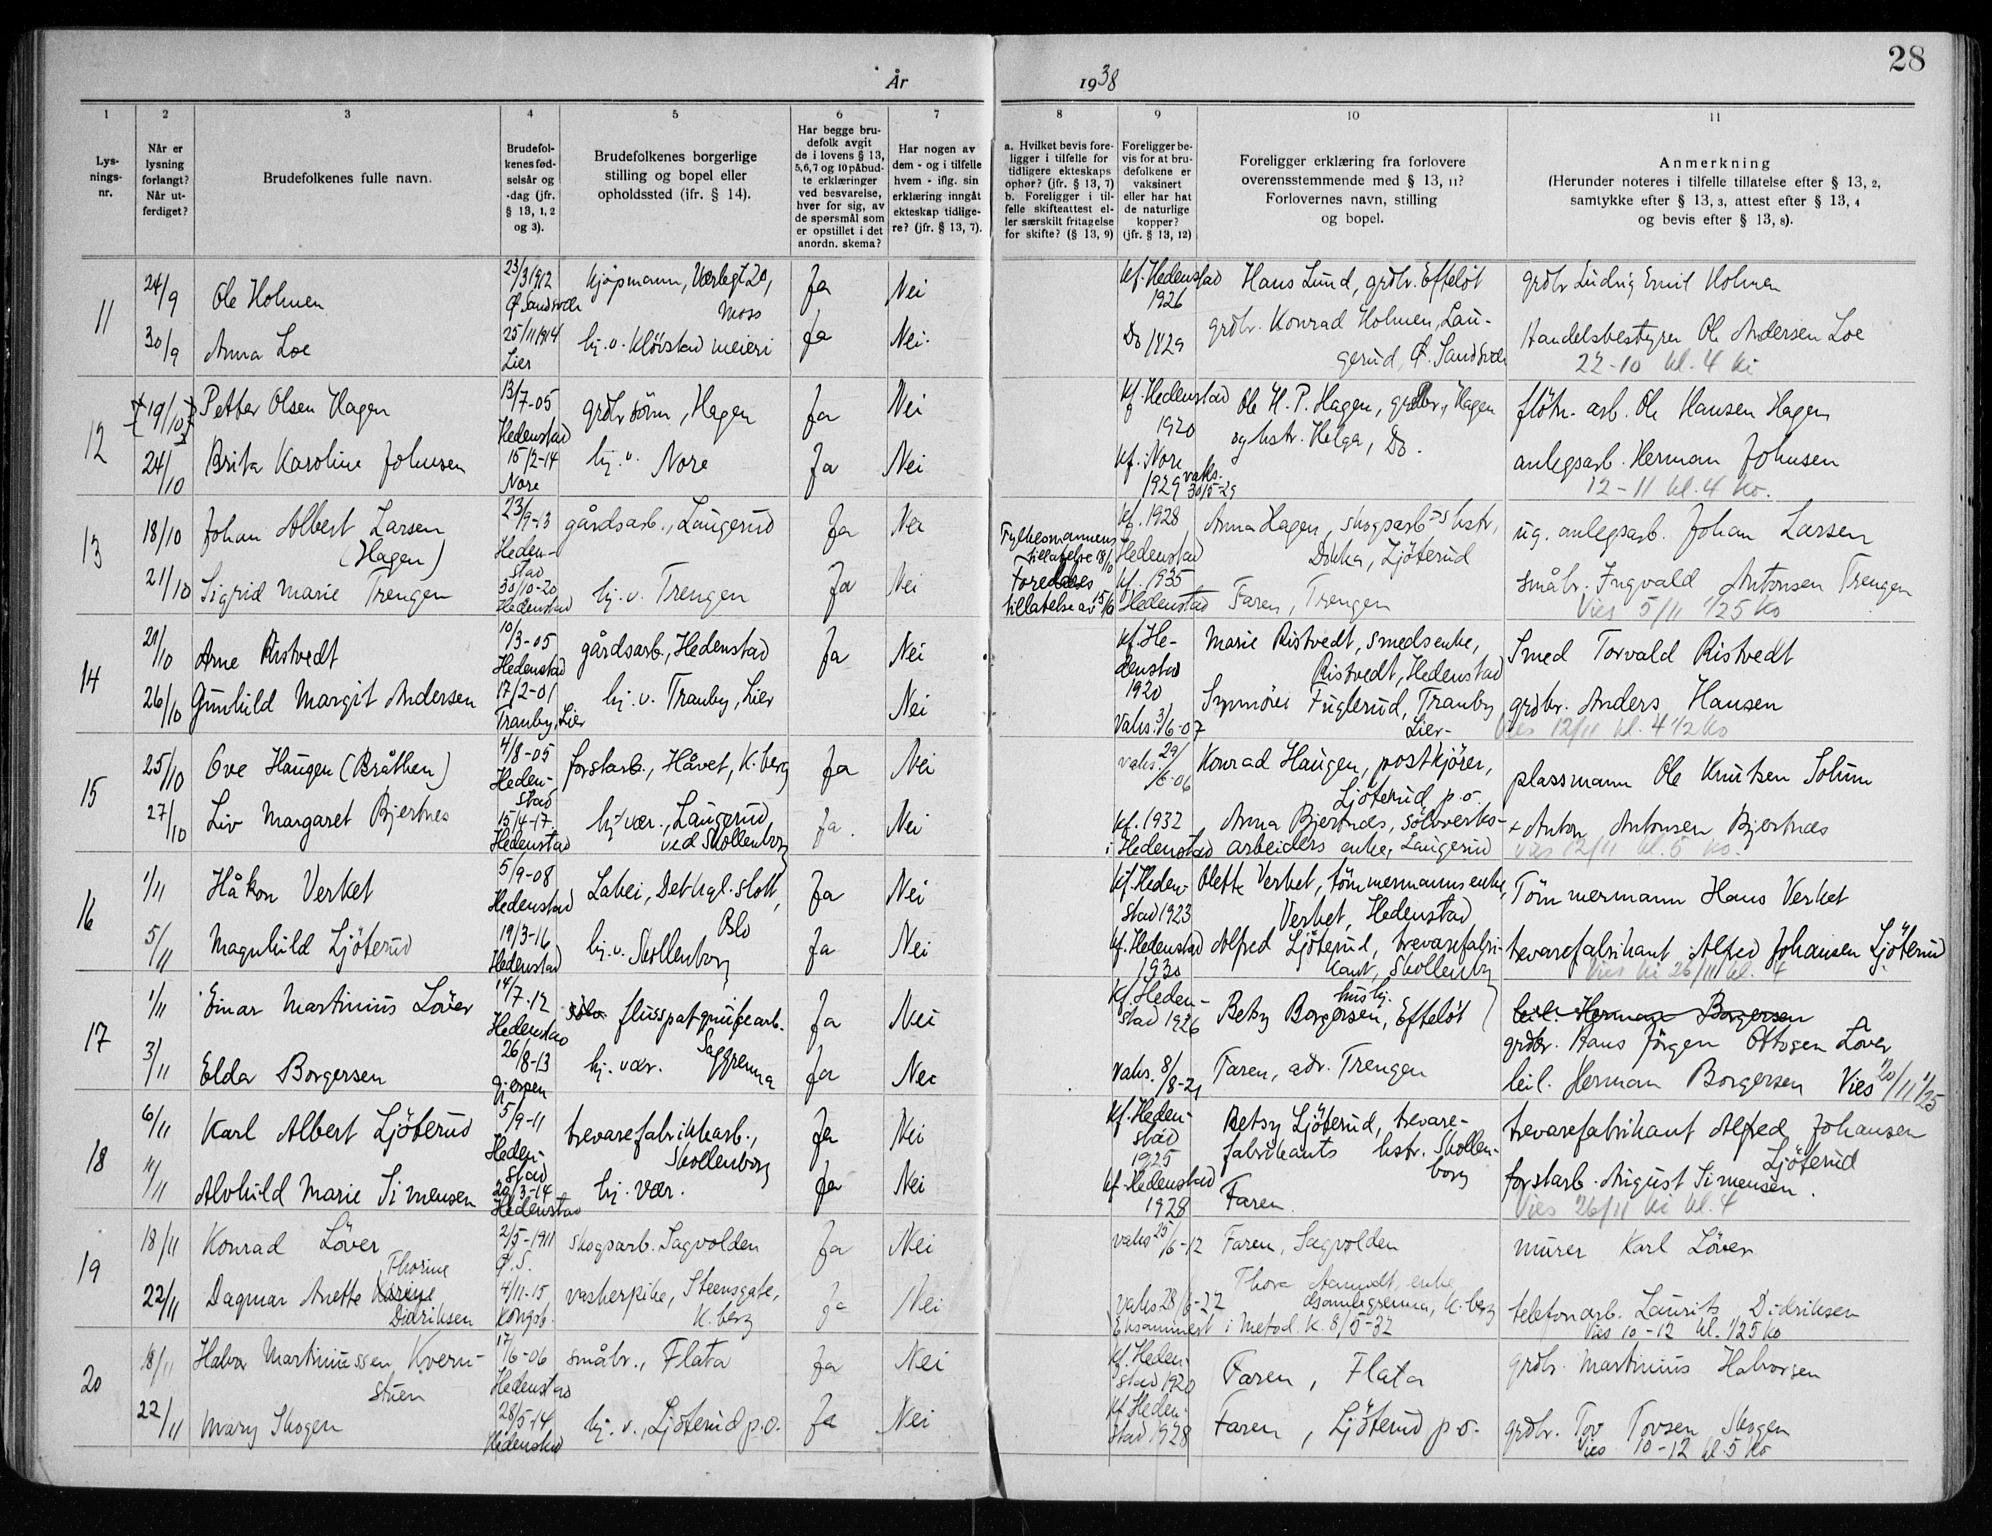 28
År 1938
1 2 3 4 5 6 7 8 9 10 11
Lysnings-nr.
Når er lysning forlangt? Når utferdiget?
Brudefolkenes fulle navn.
Brudefolkenes fødselsår og -dag (jfr. § 13, 1, 2 og 3).
Brudefolkenes borgerlige stilling og bopel eller opholdssted (jfr. § 14).
Har begge brudefolk avgit de i lovens § 13, 5,6,7 og 10 påbudte erklæringer ved besvarelse, hver for sig, av de spørsmål som er opstillet i det anordn. skema?
Har nogen av dem - og i tilfelle hvem - iflg. sin erklæring inngåt ekteskap tidligere? (jfr. § 13, 7).
a. Hvilket bevis foreligger i tilfelle for tidligere ekteskaps ophør? (jfr. § 13, 7) b. Foreligger i tilfelle skifteattest eller særskilt fritagelse for skifte? (§ 13, 9)
Foreligger bevis for at brudefolkene er vaksinert eller har hat de naturlige kopper? (jfr. § 13, 12)
Foreligger erklæring fra forlovere overensstemmende med § 13, 11? Forlovernes navn, stilling og bopel.
Anmerkning (Herunder noteres i tilfelle tillatelse efter § 13, 2, samtykke efter § 13, 3, attest efter § 13, 4 og bevis efter § 13, 8).
11 24/9 Ole Holmen 23/3 1912 Ø. Sandsvær kjøpmann, Værlegt 20, Moss Ja Nei kf. Hedenstad 1926 Hans Lund, grdbr. Efteløt grdbr Ludvig Emil Holmen
30/9 Anna Loe 25/11 1914 Lier hj. v. Kløvstad meieri Ja Nei. Do 1929 grdbr. Konrad Holmen, Laugerud, Ø. Sandsvær Handelsbestyrer Ole Andersen Loe
22-10 kl. 4 ki
12 19/10 Petter Olsen Hagen 13/7-05 Hedenstad grdbrsønn, Hagen Ja Nei kf. Hedenstad 1920 Ole H. P. Hagen, grdbr, Hagen og hstr. Helga, Do. fløtn. arb. Ole Hansen Hagen
24/10 Brita Karoline Johnsen 15/2-14 Nore hj. v. Nore Ja Nei kf. Nore 1929 vaks. 30/5-29 anlegsarb. Herman Johnsen
12-11 kl. 4 ko.
13 18/10 Johan Albert Larsen (Hagen) 23/9-13 Hedenstad gårdsarb., Laugerud Ja Nei Fylkesmannens tillatelse 18/10 kf. 1928 Hedenstad Anna Hagen, skogsarb-s hstr, Dokka, Ljøterud ug. anlegsarb. Johan Larsen
21/10 Sigrid Marie Trengen 30/10-20 Hedenstad hj. v. Trengen Ja Nei Foreldres tillatelse av 15/6 kf. 1935 Hedenstad Faren, Trengen småbr. Ingvald Antonsen Trengen
Vies 5/11 1/2 5 ko
14 21/10 Arne Ristvedt 10/3-05 Hedenstad gårdsarb., Hedenstad Ja Nei kf. Hedenstad 1920 Marie Ristvedt, smedsenke, Ristvedt, Hedenstad Smed Torvald Ristvedt
26/10 Gunhild Margit Andersen 17/2-01 Tranby, Lier hj. v. Tranby, Lier Nei Vaks. 3/6-07 Synnöve Fuglerud, Tranby Lier- grdbr. Anders Hansen
Vies 12/11 kl. 4 1/2 ko
15 25/10 Ove Haugen (Bråthen) 4/8-05 Hedenstad forstarb., Håvet, K.berg Ja Nei vaks. 29/6-06 Konrad Haugen, postkjörer, Ljöterud p.o. plassmann Ole Knutsen Solum
27/10 Liv Margaret Bjertnes 15/4-17 Hedenstad hj. vær., Laugerud ved Skollenborg Ja. Nei kf. 1932 i Hedenstad Anna Bjertnes, sölvverks-arbeiders enke, Laugerud + Anton Antonsen Bjertnes
Vies 12/11 kl. 5 ko.
16 1/11 Håkon Verket 5/9-08 Hedenstad Lakei, Det kgl. slott, Oslo Ja Nei kf. Hedenstad 1923 Olette Verket, tömmermanns enke, Verket, Hedenstad Tömmermann Hans Verket
5/11 Magnhild Ljöterud 19/3-16 Hedenstad hj. v. Skollenborg Ja Nei kf. Hedenstad 1930 Alfred Ljöterud, trevarefabrikant, Skollenbg trevarefabrikant Alfred Johansen Ljöterud
Vies ki 26/11 kl. 4
17 1/11 Einar Martinius Löver 14/7-12 Hedenstad flusspatgrubearb. Saggrenna Ja Nei kf. Hedenstad 1926 Betsy Borgersen, hushj. Efteløt leil. Herman Borgersen
grdbr. Hans Jörgen Ottosen Löver
3/11 Elda Borgersen 26/8-13 Gjerpen hj. vær. Ja Nei Vaks. 8/8-21 Faren, adr. Trengen leil. Herman Borgersen Vies 20/11 1/2 5
18 6/11 Karl Albert Ljöterud 5/9-11 Hedenstad trevarefabrikkarb., Skollenborg Ja Nei kf. Hedenstad 1925 Betsy Ljöterud, trevarefabrikants hstr. Skollenborg trevarefabrikant Alfred Johansen Ljöterud
11/11 Alvhild Marie Simensen 20/3-14 Hedenstad hj. vær. Ja Nei kf. Hedenstad 1928 Faren. forstarb. August Simensen.
Vies 26/11 ki kl. 4
19 18/11 Konrad Löver 2/5-1911 Ø.S. skogsarb. Sagvolden Ja Nei vaks 25/6-12 Faren, Sagvolden murer Karl Löver
22/11 Dagmar Anette Thorine Didriksen 4/11-15 Kongsb. vaskerpike, Steensgate, K.berg Ja Nei vaks 28/6-22 Eksaminert i Metod. K. 8/5-32 Thora Aamodt, enke, K.berg telefonarb. Laurits Didriksen
Vies 10-12 kl. 1/2 5 ko
20 18/11 Halvor Martiniussen Kvernstuen 17/6-06 Hedenstad småbr., Flata Ja Nei kf. Hedenstad 1920 Faren, Flata grdbr. Martinius Halvorsen
22/11 Mary Skogen 28/5-14 Hedenstad hj. v., Ljöterud p.o. Ja Nei kf. Hedenstad 1928 Faren, Ljöterud p.o. grdbr. Tov Tovsen Skogen
Vies 10-12 kl. 5 ko